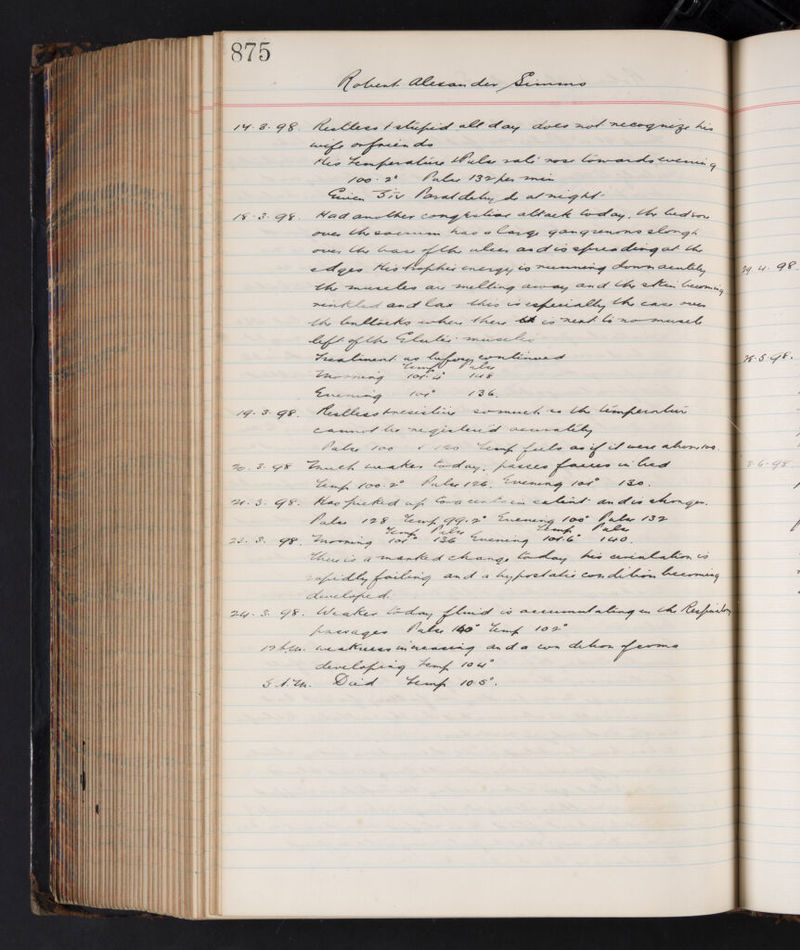 875
Robert Alexander Simms
Restless & stupid all day does not recognize his
wife or friends
His Temperature & Pulse rate rose towards evening
100.2° Pulse 132 per min
Given ʒiv Paraldehyde at night
18.3.98. Had another congestive attack today, the bedsore
over the sacrum has a large gangrenous slough
over the base of the ulcer and is spreading at the
edges His trophic energy is running down acutely
the muscles are melting away and the skin becoming
rinkled and lax this is especially the case over
the buttocks where there is next to no muscle
left of the Glutei muscles
Treatment as before continued
Temp Pulse
Morning 148
Evening 136.
19.3.98. Restless & resistive so much so the temperature
cannot be registered accurately
Pulse Temp feels as if it were above
20.3.98 Much weaker today, passes faeces in bed
Temp 100.2° Pulse 126. Evening 130.
Has picked up to a certain extent and is stronger.
Pulse 128 Temp 99.2° Evening 100° Pulse 132
Temp Pulse Temp Pulse
23.3.98. Morning 101° 136 Evening 101.6° 140.
There is a marked change today his circulation is
rapidly failing and a hypostatic condition becoming
developed
24.3.98. Weaker today fluid is accumulating in the Respiratory
passages Pulse 140 Temp 102°
weakness increasing and a condition of coma
developing Temp 104°
Died Temp 105°.
29.4.98.
28.5.98.